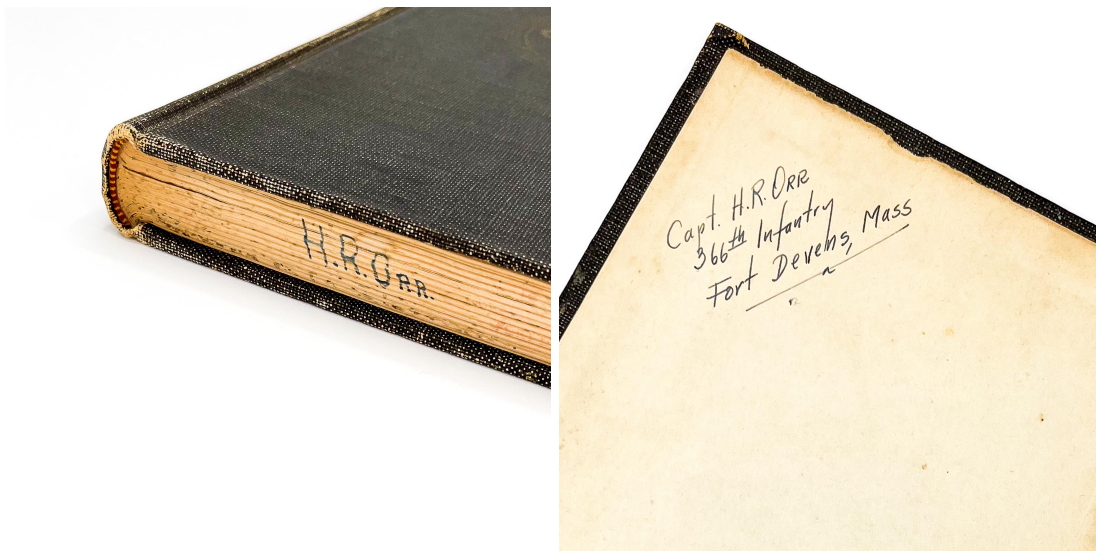 H.R.ORR.
Capt. H.R.ORR
366th Infantry
Fort Devens, Mass